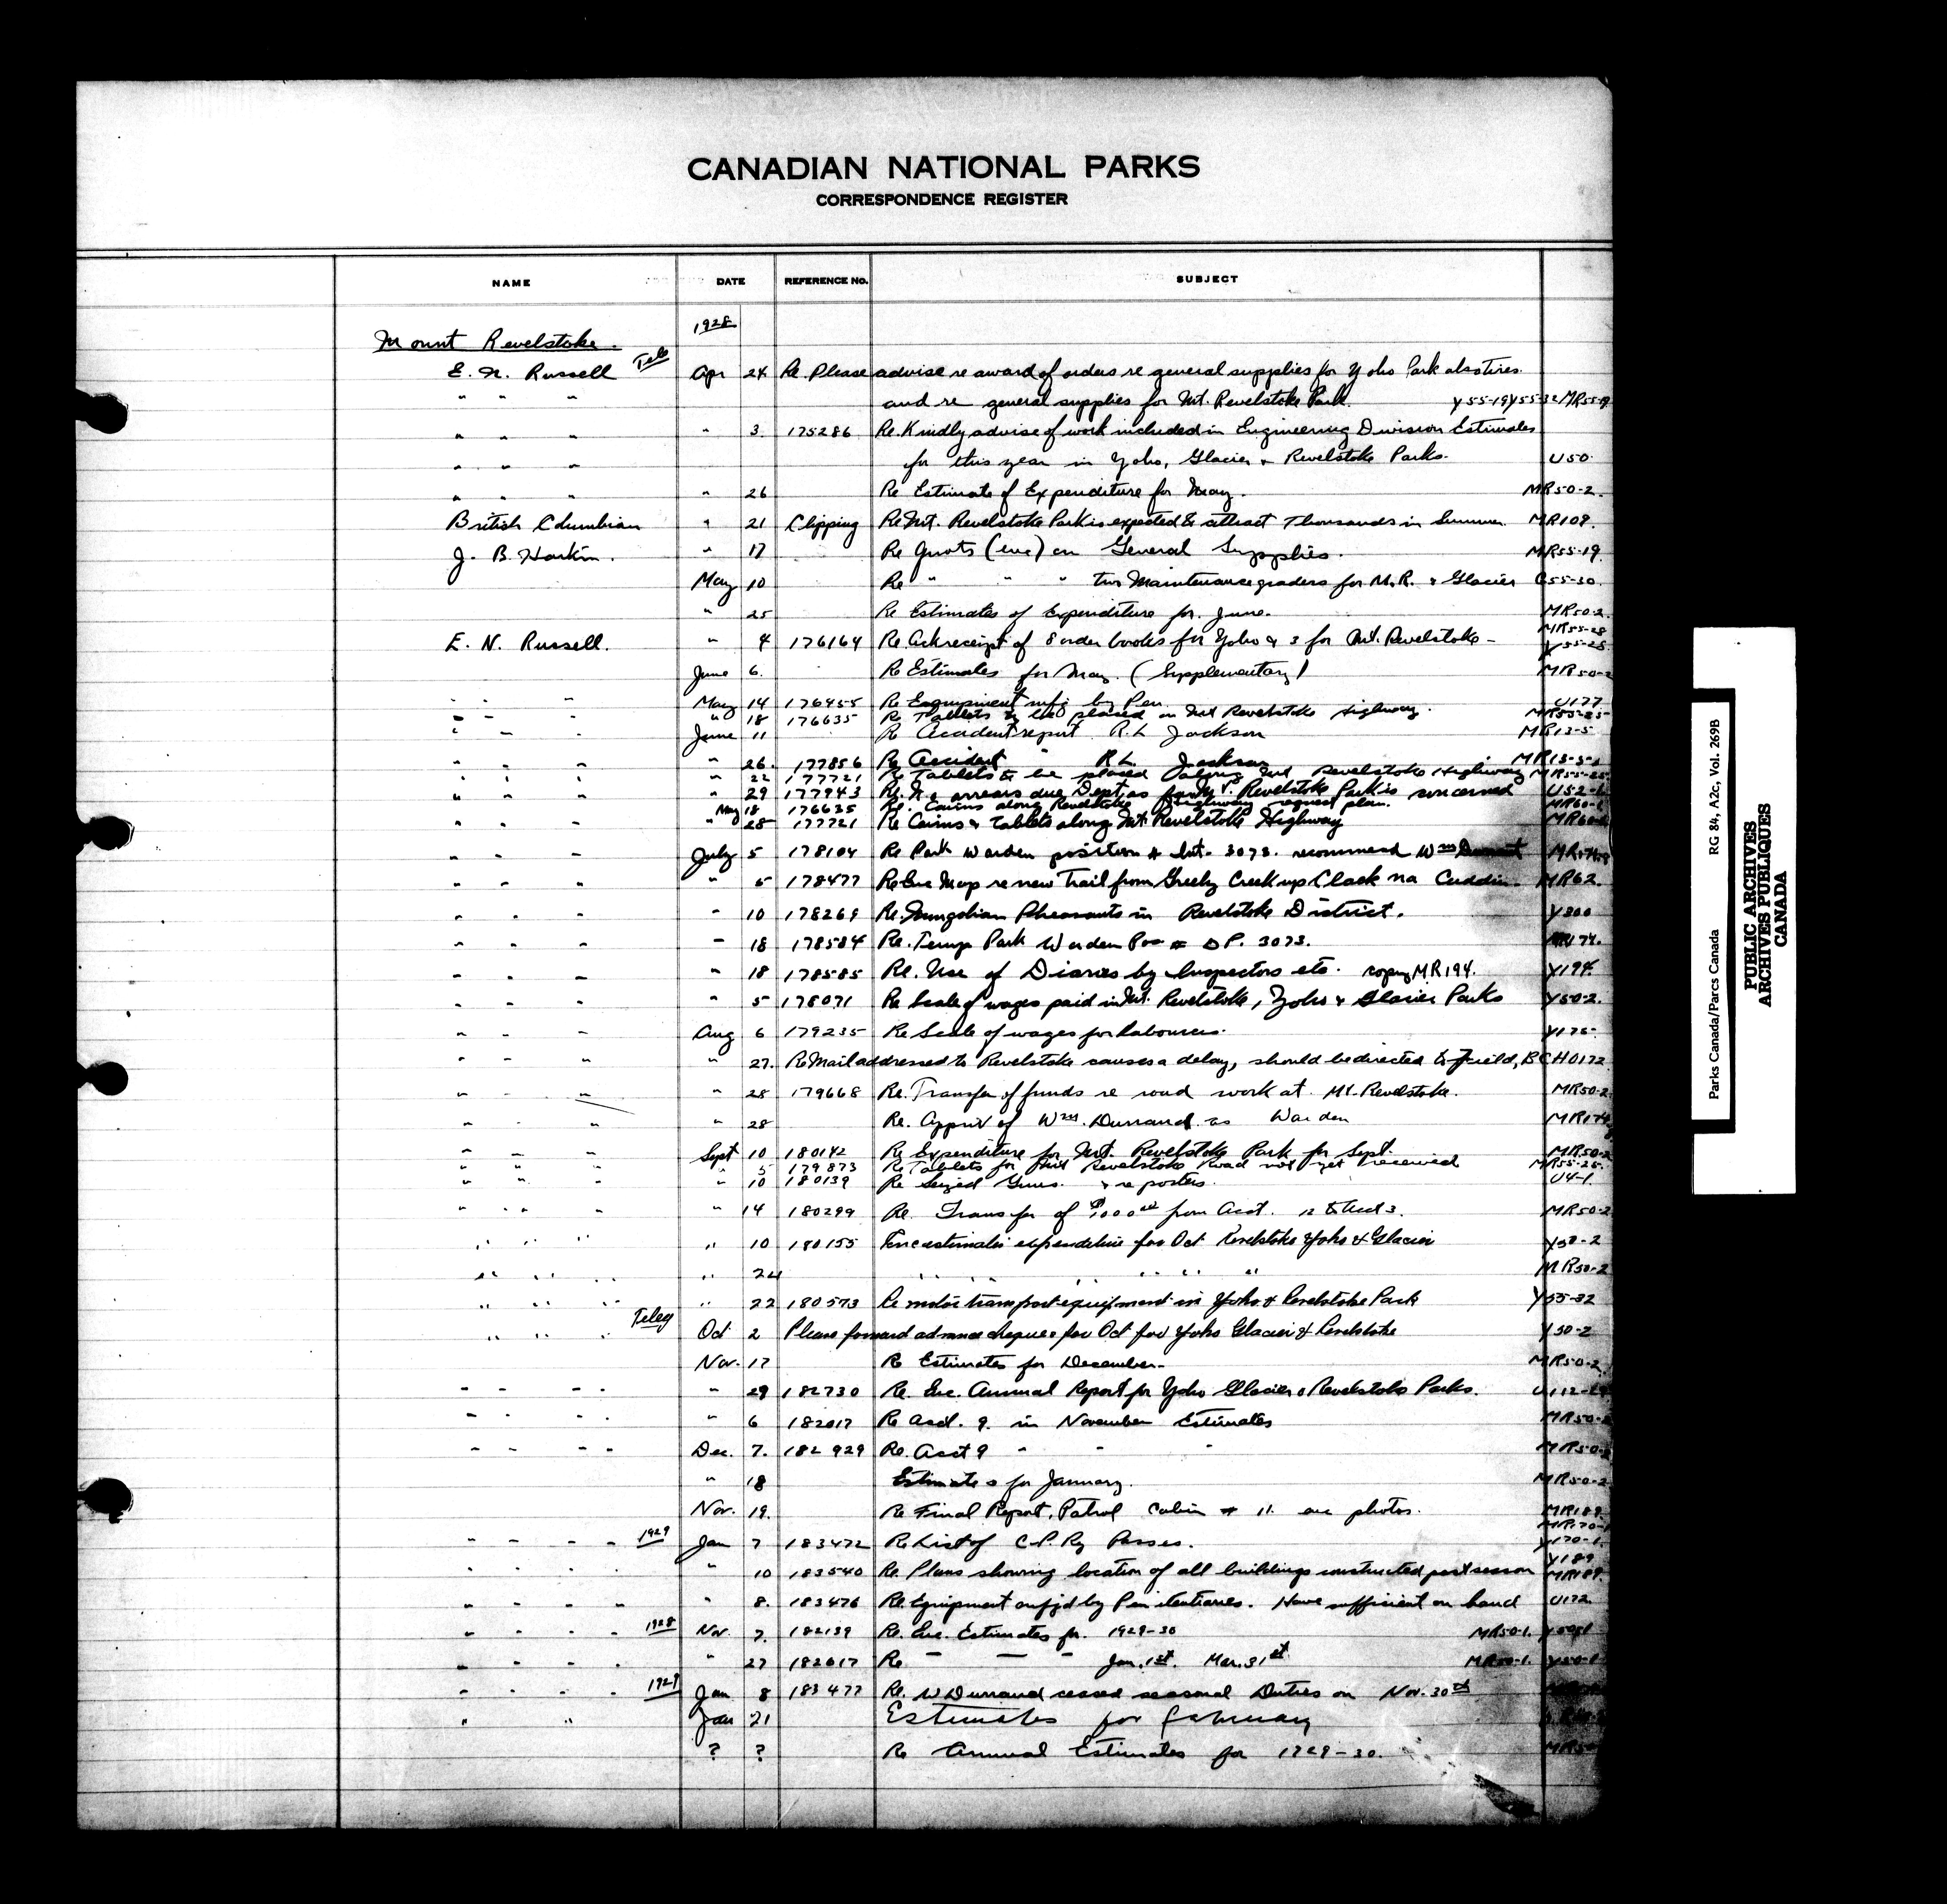 CANADIAN NATIONAL PARKS
CORRESPONDENCE REGISTER
NAME DATE REFERENCE NO. SUBJECT
1928
Mount Revelstoke.
E. N. Russell Tele Apr 24 Re. Please advise re award of orders re general supplies for Yoho Park also tires
" " " and re general supplies for Mt. Revelstoke Park. Y55-19 Y55-32 MR55-19
" " " " 3. 175286 Re. Kindly advise of work included in Engineering Division Estimates
" " " for this year in Yoho, Glacier & Revelstoke Parks. U50
" " " " 26 Re Estimate of Expenditure for May. MR50-2.
British Columbian " 21 Clipping Re Mt. Revelstoke Park is expected to attract Thousands in Summer. MR109.
J. B. Harkin. " 17 Re Quots (enc) on General Supplies. MR55-19.
May 10 Re " " " two Maintenance graders for M.R. & Glacier G55-30.
" 25 Re Estimates of Expenditure for June. MR50-2.
E. N. Russell. " 4 176164 Re Ack receipt of 8 order books for Yoho & 3 for Mt. Revelstoke - MR55-28 Y55-28
June 6. Re Estimates for May. (Supplementary) MR50-2
" " " May 14 176455 Re Equipment mfg by Pen U177
" " " 18 176635 Re Tablets to be placed on Mt Revelstoke Highway. MR55-25
" " " June 11 Re Accident report R.L Jackson MR13-5
" " " " 26. 177856 Re Accident " R L. Jackson MR13-5-1
" " " " 22 177721 Re Tablets to be placed along Mt Revelstoke Highway MR55-25
" " " " 29 177943 Re. arrears due Dept, as far Mt. Revelstoke Park is concerned U52-
May 18 176635 Re. Cairns along Revelstoke Highway request plan. MR60-
" 28 177721 Re Cairns & Tablets along Mt. Revelstoke Highway MR60-
" " " July 5 178104 Re Park Warden position # Int- 3073. recommend Wm
" " " " 5 178477 Re Enc Map re new Trail from Greely Creek up Clach na Cuddin. MR62.
" " " " 10 178269 Re. Mungolian Pheasants in Revelstoke District. Y300
" " " " 18 178584 Re. Temp Park Warden Pos # DP. 3073. MR174.
" " " " 18 178585 Re. Use of Diaries by Inspectors etc. copy MR194. Y194.
" " " " 5 178071 Re Scale of wages paid in Mt. Revelstoke, Yoho & Glacier Parks Y50-2.
" " " Aug 6 179235 Re Scale of wages for Labourers. Y175
" " " " 27. Re Mail addressed to Revelstoke causes a delay, should be directed to Field, BC HO172
" " " " 28 179668 Re. Transfer of funds re road work at Mt. Revelstoke. MR50-2
" " " " 28 Re. Appnt of Wm. Durrand as Warden MR174
" " " Sept 10 180142 Re Expenditure for Mt. Revelstoke Park for Sept. MR50-2
" " " " 5 179873 Re Tablets for Mt Revelstoke Road not yet received MR55-25.
" " " " 10 180139 Re Seized Guns. & re posters. U4-1.
" " " " 14 180299 Re. Transfer of $1000.00 from Acct. 12 to Acct 3. MR50-2
" " " " 10 180155 Enc estimates expenditure for Oct Revelstoke Yoho & Glacier Y50-2
" " " " 24 " " " " " " " " MR50-2
" " " " 22 180573 Re motor transport equipment in Yoho & Revelstoke Park Y55-32
" " " Teleg Oct 2 Please forward advance cheques for Oct for Yoho Glacier & Revelstoke Y50-2
Nov. 17 Re Estimates for December. MR50-2.
" " " " 29 182730 Re. Enc. Annual Report for Yoho Glacier & Revelstoke Parks. U112-
" " " " 6 182017 Re Acct. 9. in November Estimates MR50-2
" " " Dec. 7. 182929 Re. Acct 9 " " " MR50-2
" 18 Estimates for January. MR50-2
Nov. 19. Re Final Report, Patrol Cabin # 11. enc photos. MR189.
" " " 1929 Jan 7 183472 Re List of C.P. Ry Passes. MR170-1 Y170-1.
" " " " 10 183540 Re. Plans showing location of all buildings constructed past season Y189 MR189.
" " " " 8. 183476 Re Equipment mnfg'd by Penitentiaries. Have sufficient on hand U172
" " " 1928 Nov. 7. 182139 Re. Enc. Estimates for. 1929-30 MR50-1.
" " " " 27 182617 Re - - - Jan. 1st. Mar. 31st MR50-1. Y50-1
" " " 1929 Jan 8 183477 Re. W Durrand ceased seasonal Duties on Nov. 30th
" " Jan 21 Estimates for February
? ? Re Annual Estimates for 1929-30. MR50
Parks Canada/Parcs Canada RG 84, A2c, Vol. 269B
PUBLIC ARCHIVES
ARCHIVES PUBLIQUES
CANADA